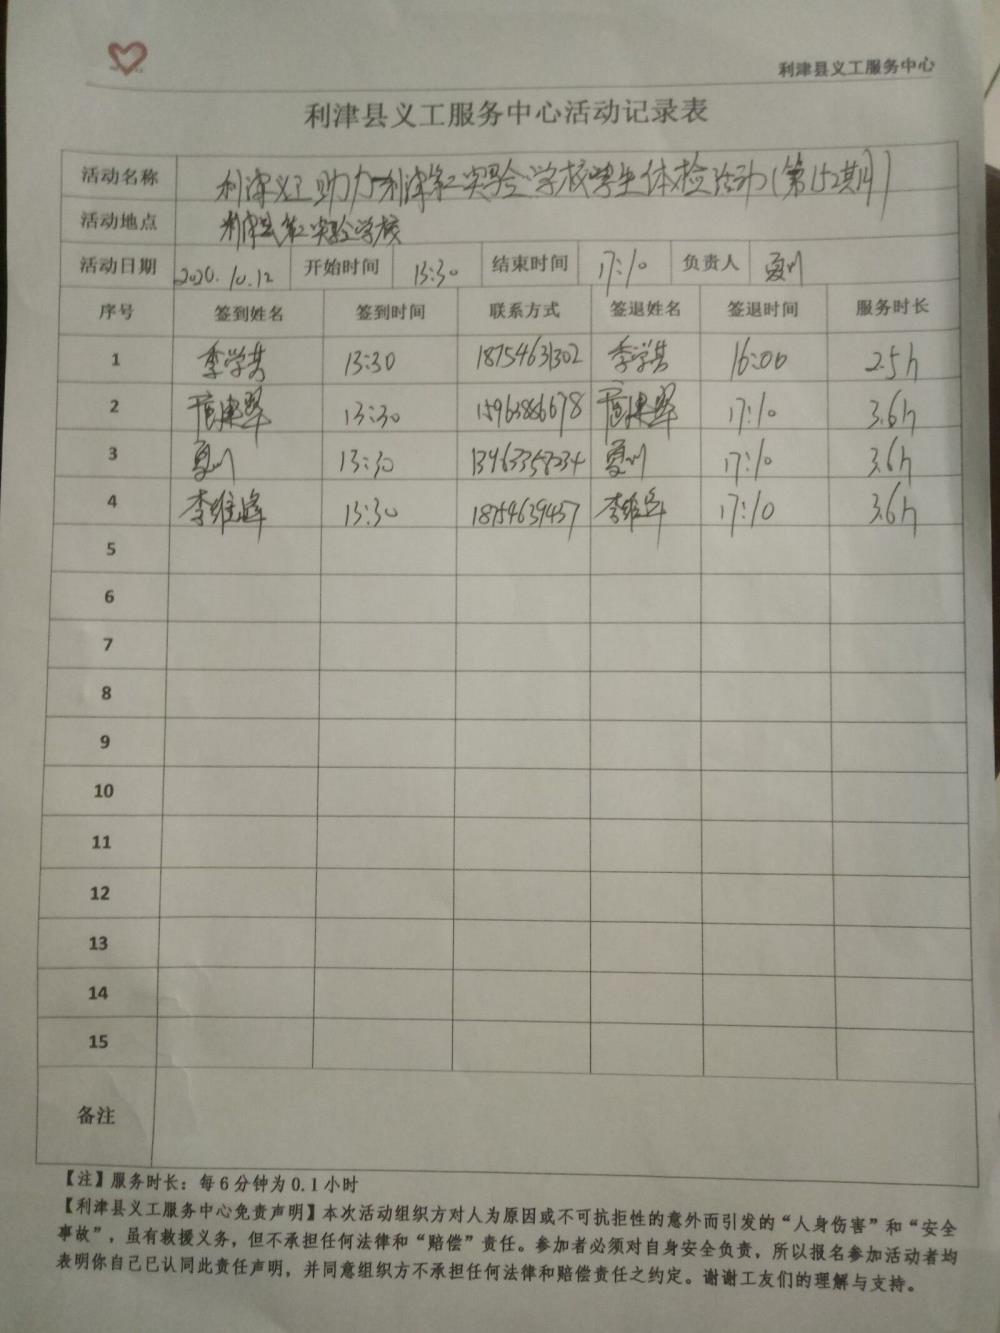 利津县义工服务中心
利津县义工服务中心活动记录表
活动名称 利津义工助力利津第二实验学校学生体检活动(第152期)
活动地点 利津县第二实验学校
活动日期 2020.10.12 开始时间 13:30 结束时间 17:10 负责人 夏川
序号 签到姓名 签到时间 联系方式 签退姓名 签退时间 服务时长
1 季学芳 13:30 18754631302 季学芳 16:00 2.5h
2 13:30 15963886678 17:10 3.6h
3 夏川 13:30 13463358234 夏川 17:10 3.6h
4 李维峰 13:30 18754639457 李维峰 17:10 3.6h
5
6
7
8
9
10
11
12
13
14
15
备注
【注】服务时长：每6分钟为0.1小时
【利津县义工服务中心免责声明】本次活动组织方对人为原因或不可抗拒性的意外而引发的“人身伤害”和“安全
事故”，虽有救援义务，但不承担任何法律和“赔偿”责任。参加者必须对自身安全负责，所以报名参加活动者均
表明你自己已认同此责任声明，并同意组织方不承担任何法律和赔偿责任之约定。谢谢工友们的理解与支持。